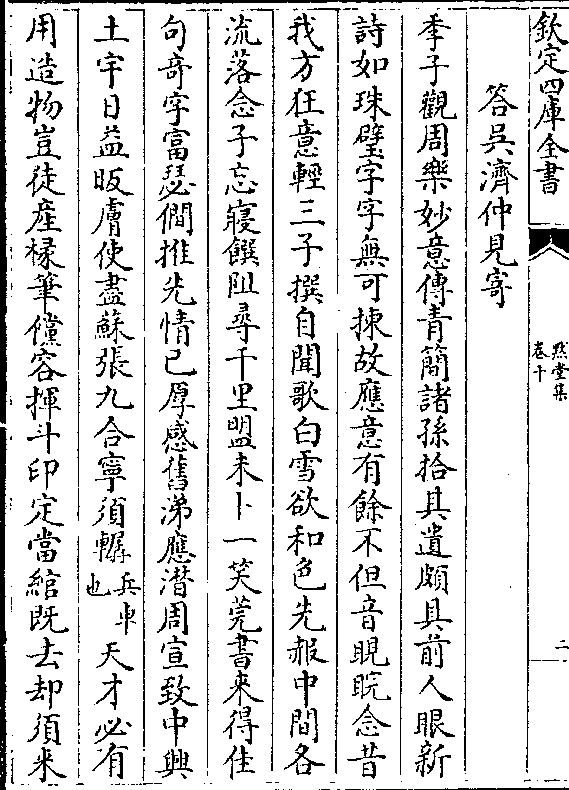 欽定四庫全書
黙堂集
卷十
二
答吳濟仲見寄
季子觀周樂妙意傳青簡諸孫拾其遺頗具前人眼新
詩如珠璧字字無可揀故應意有餘不但音睍睆念昔
我方狂意輕三子撰自聞歌白雪欲和色先赧中間各
流落念子忘寢饌阻尋千里盟未卜一笑莞書來得佳
句奇字富瑟僩推先情已厚感舊涕應潸周宣致中興
土宇日益昄膚使盡蘇張九合寧須轏兵車也天才必有
用造物豈徒產椽筆儻容揮斗印定當綰既去却須来